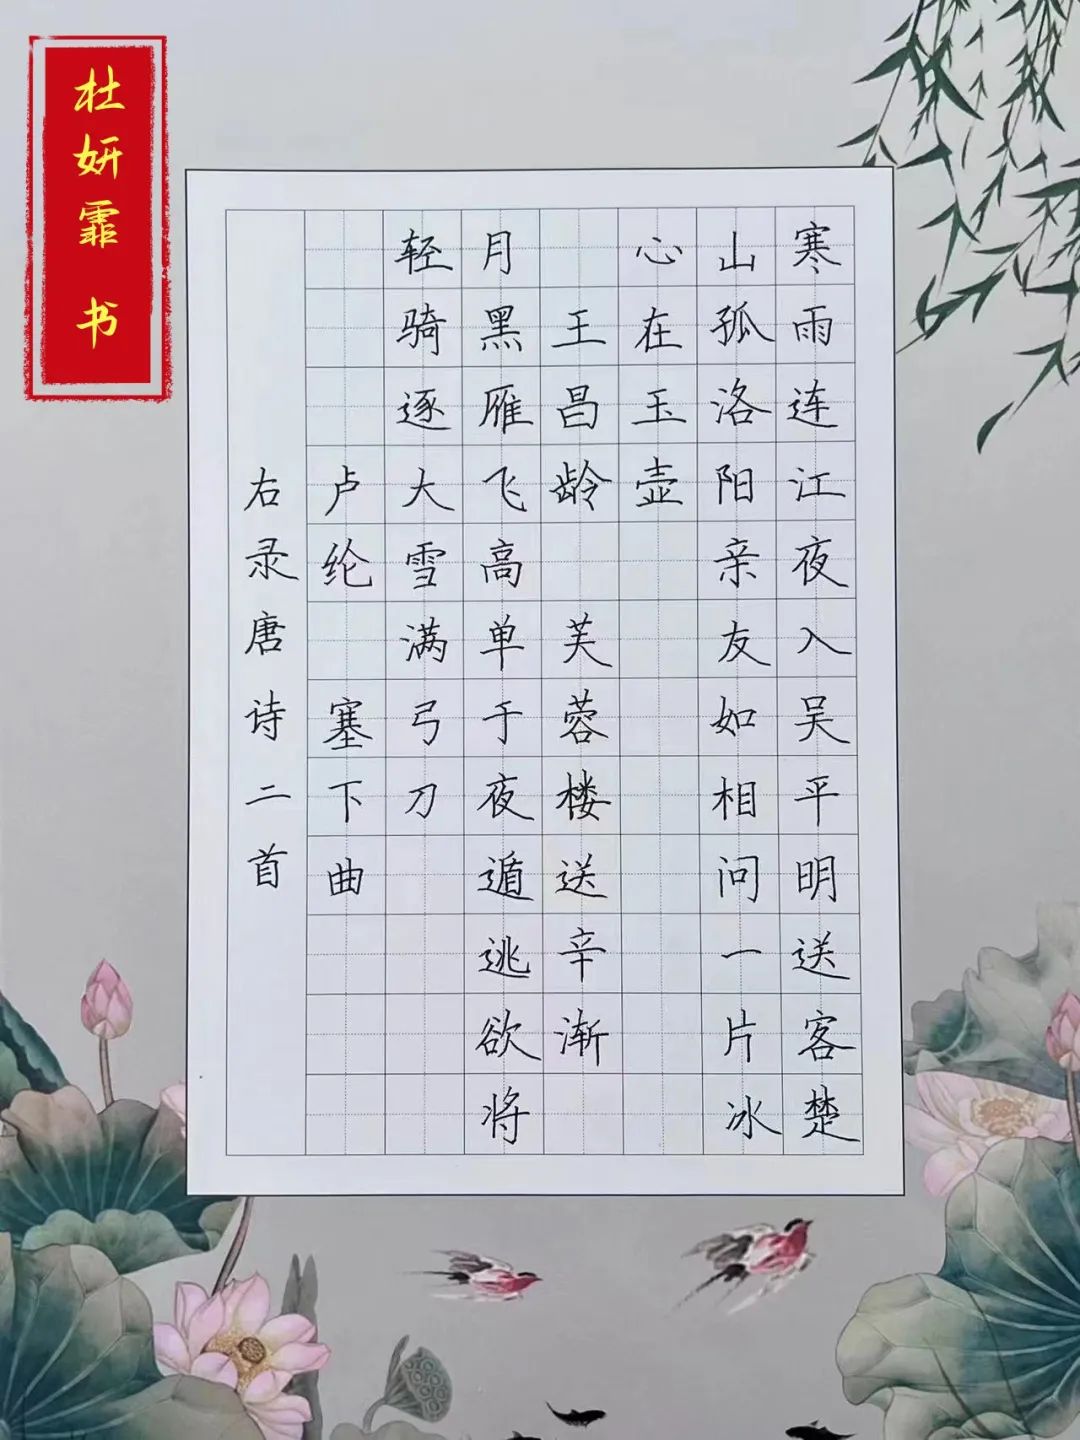 杜妍霏 书
寒雨连江夜入吴平明送客楚
山孤洛阳亲友如相问一片冰
心在玉壶
王昌龄 芙蓉楼送辛渐
月黑雁飞高单于夜遁逃欲将
轻骑逐大雪满弓刀
卢纶 塞下曲
右录唐诗二首